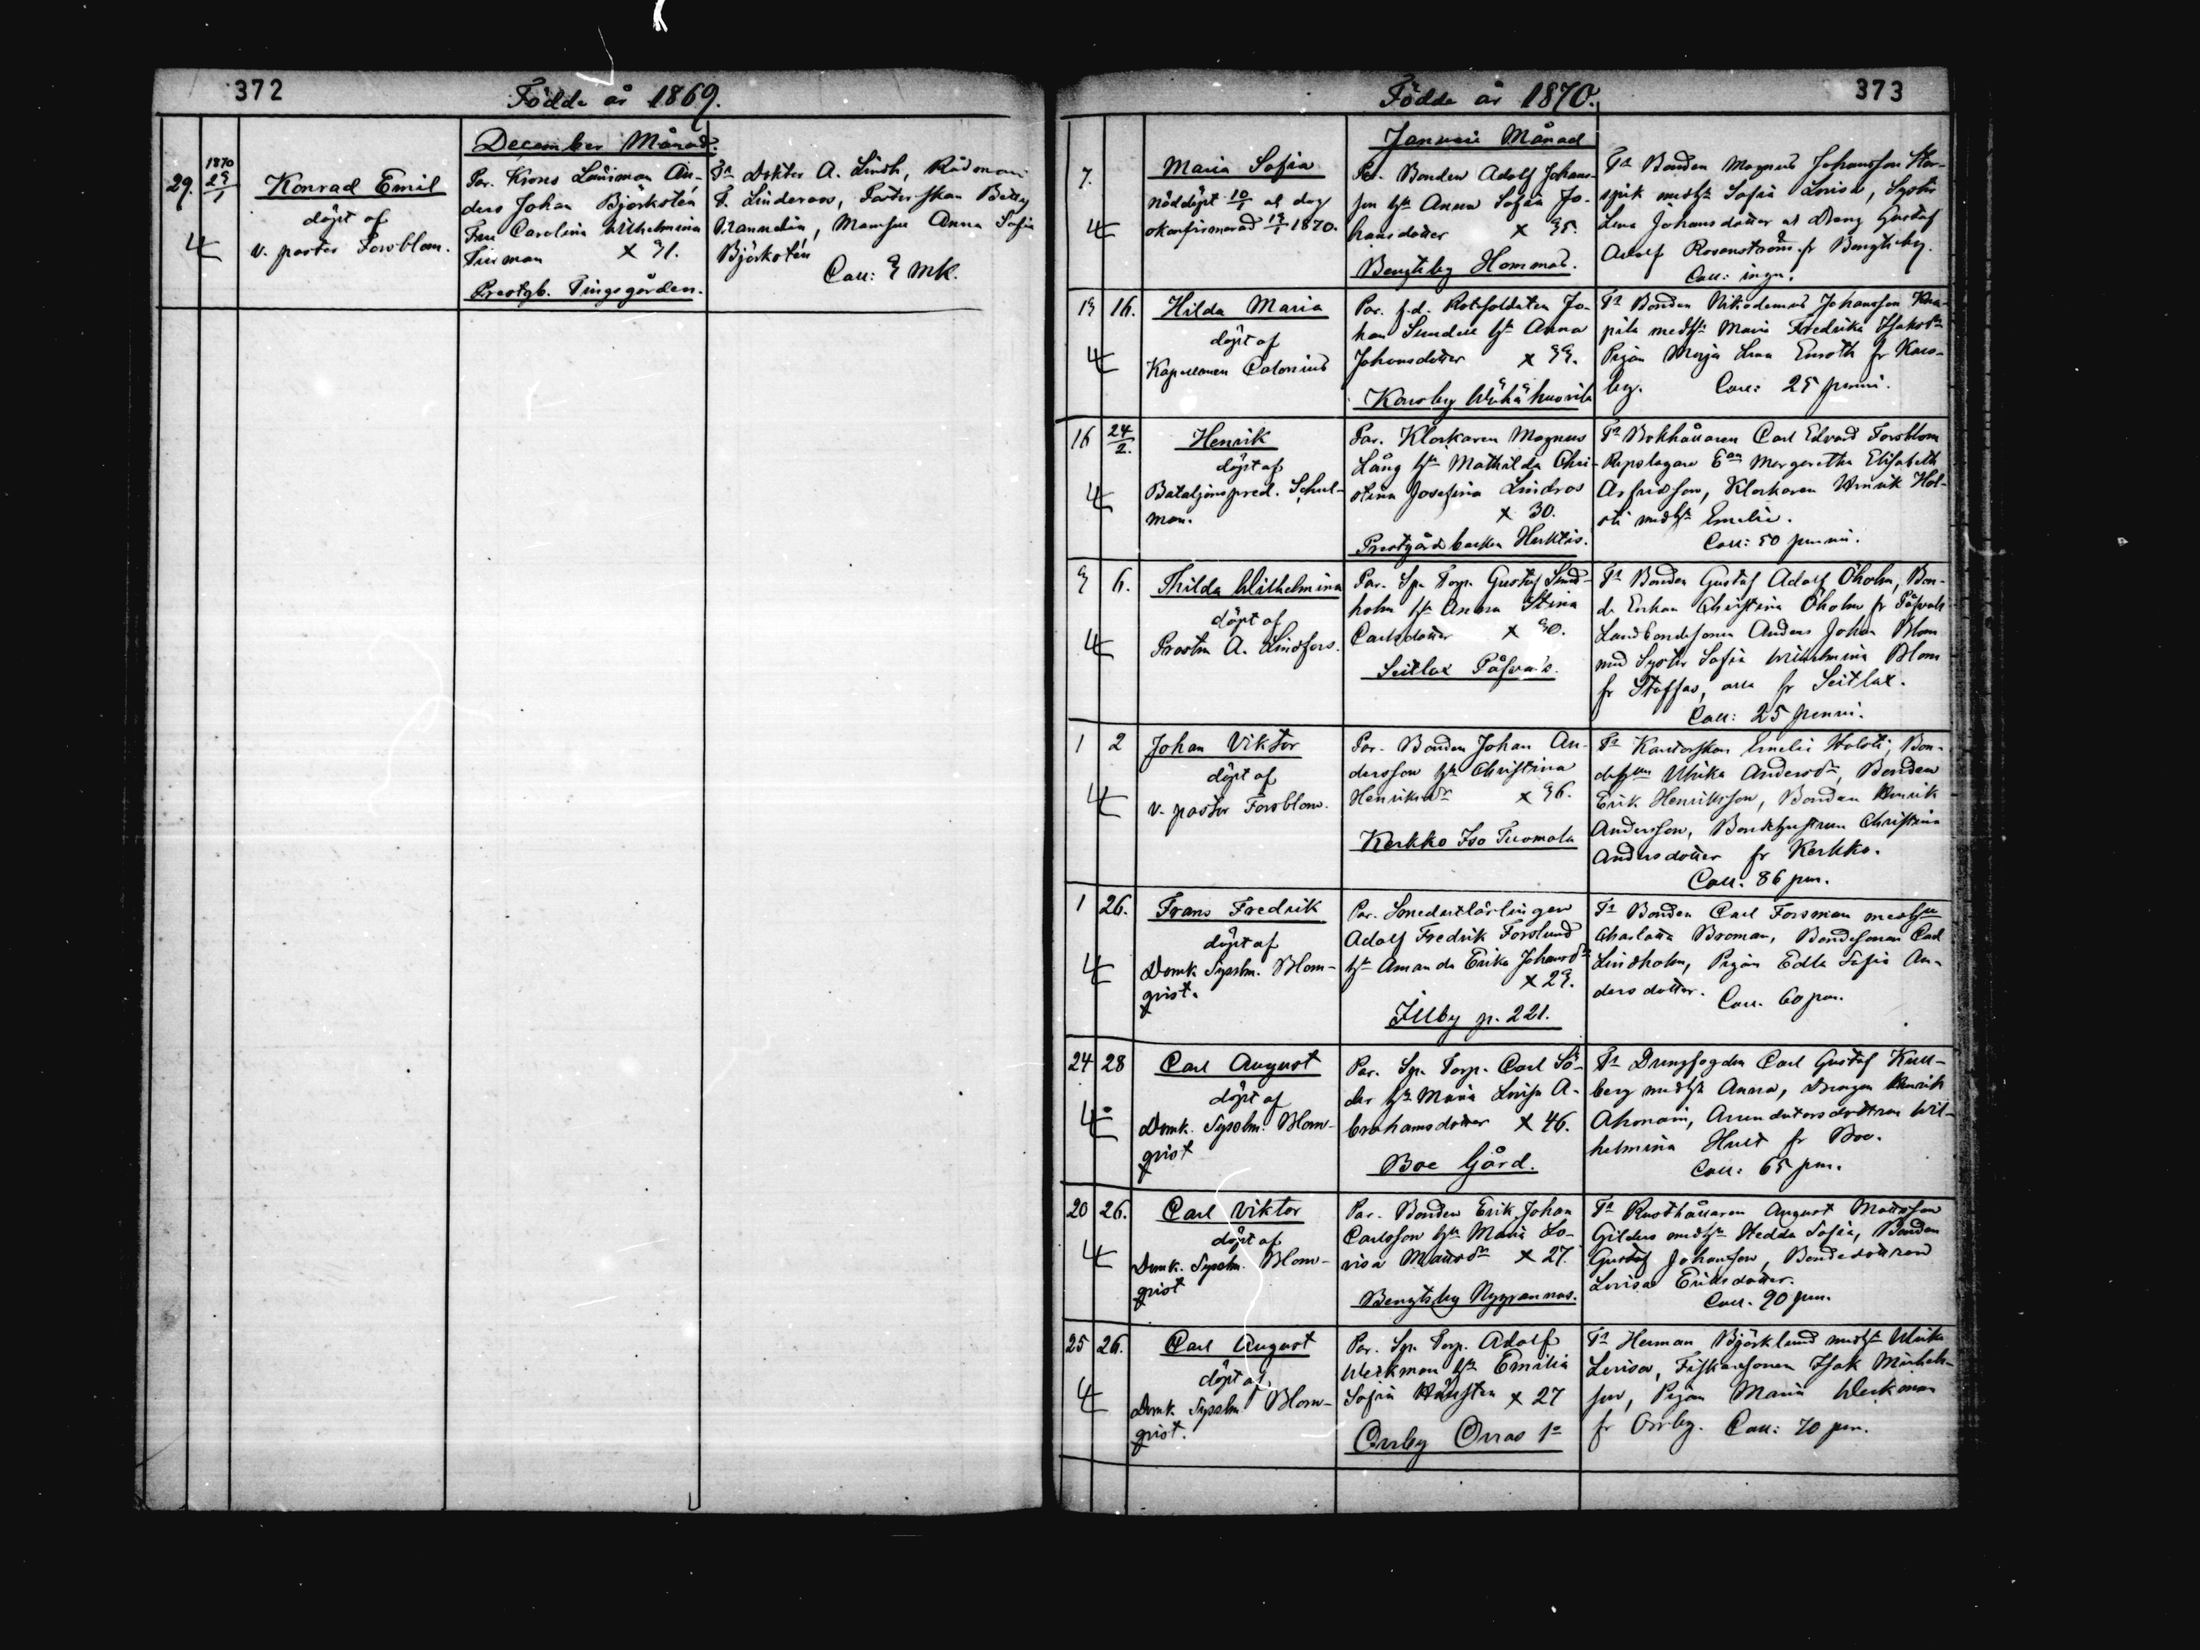 372
Födde år 1869.
December Månad.
29.
1870
29/1
Konrad Emil
döpt af
v. pastor Forsblom.
Par. Krono Länsman An-
ders Johan Björkstén
Fru Carolina Wilhelmina
x 31.
Prestgb. Tingsgården.
Fa Doktor A. Lindh, Rådman
F. Linderoos, Pastorskan Betty
Mannelin, Mamsell Anna Sofia
Björkstén
Coll: 3 mk.
373
Födde år 1870.
Januari Månad
7.
Maria Sofia
nöddöpt 10/1 af
o konfirmerad 1870.
Par. Bonden Adolf Johans-
son h. Anna Sofia Jo-
hansdotter x 35.
Bengtsby Hommas.
Fa Bonden Magnus Johansson
med h. Sofia Lovisa, Syster
Lena Johansdotter at Dreng Gustaf
Adolf Rosenström fr Bengtsby.
Coll: ingen.
13 16. Hilda Maria
döpt af
Kapellanen Calonius
Par. f.d. Rotesoldaten Jo-
han Sundell h. Anna
Johansdotter x 33.
Karsby
Fa Bonden Nikodemus Johansson
med h. Maria Fredrika
Pigan Maja Lena Enroth fr Kars-
by. Coll: 25 penni.
16 24/2. Henrik
döpt af
Bataljonspred. Schul-
man.
Par. Klockaren Magnus
Lång h. Mathilda Chri-
stina Josefina Lindros
x 30.
Prestgårdsbacken
Fa Bokhållaren Carl Edvard Forsblom
Repslagare Margaretha Elisabeth
Arfvidson, Klockaren Henrik Hol-
sti med h. Emelie.
Coll: 50 penni.
3 6. Thilda Wilhelmina
döpt af
Prosten A. Lindfors.
Par. Sp. Torp. Gustaf Lind-
holm h. Anna Stina
Carlsdotter x 30.
Seitlax Påfvals.
Fa Bonden Gustaf Adolf Öholm, Bon-
de Enkan Christina Öholm fr Påfvals
Landbondesonen Anders Johan Blom
med Syster Sofia Wilhelmina Blom
fr Staffas, alla fr Seitlax.
Coll: 25 penni.
1 2 Johan Viktor
döpt af
v. pastor Forsblom.
Par. Bonden Johan An-
dersson h. Christina
Henriksdr x 36.
Kerkko Iso Tuomala
Fa Kantorskan Emelie Holsti, Bon-
Ulrika Andersdr, Bonden
Erik Henriksson, Bonden Henrik
Andersson, Bondehustrun Christina
Andersdotter fr Kerkko.
Coll: 86 pen.
1 26. Frans Fredrik
döpt af
Domk. Sysslm. Blom-
qvist.
Par. Smedslärlingen
Adolf Fredrik Forslund
h. Amanda Erika Johansdr
x 23.
Illby p. 221.
Fa Bonden Carl Forsman med h.
Charlotta Broman, Bondesonen Carl
Lindholm, Pigan Edla Sofia An-
dersdotter. Coll. 60 pen.
24 28 Carl August
döpt af
Domk. Sysslm. Blom-
qvist
Par. Sp. Torp. Carl Sö-
der h. Maria Lovisa A-
brahamsdotter x 46.
Boe Gård.
Fa Drengfogden Carl Gustaf Kull-
berg med h. Anna, Drengen Henrik
Ahonain, Arrendatorsdottren Wil-
helmina Hult fr Boe.
Coll: 65 pen.
20 26. Carl Viktor
döpt af
Domk. Sysslm. Blom-
qvist
Par. Bonden Erik Johan
Carlsson h. Maria Lo-
visa Mattsdr x 27.
Bengtsby Nygrannas.
Fa Rusthållaren August Mattsson
Gilders med h. Hedda Sofia, Bonden
Gustaf Johansson, Bondedottren
Lovisa Eriksdotter.
Coll. 90 pen.
25 26. Carl August
döpt af
Domk. Sysslm Blom-
qvist.
Par. Sp. Torp. Adolf
Weckman h. Emilia
Sofia x 27
Orrby Orras 1o
Fa Herman Björklund med h. Ulrika
Lovisa, Fiskaresonen Isak Michels-
son, Pigan Maria Weckman
fr Orrby. Coll: 70 pen.